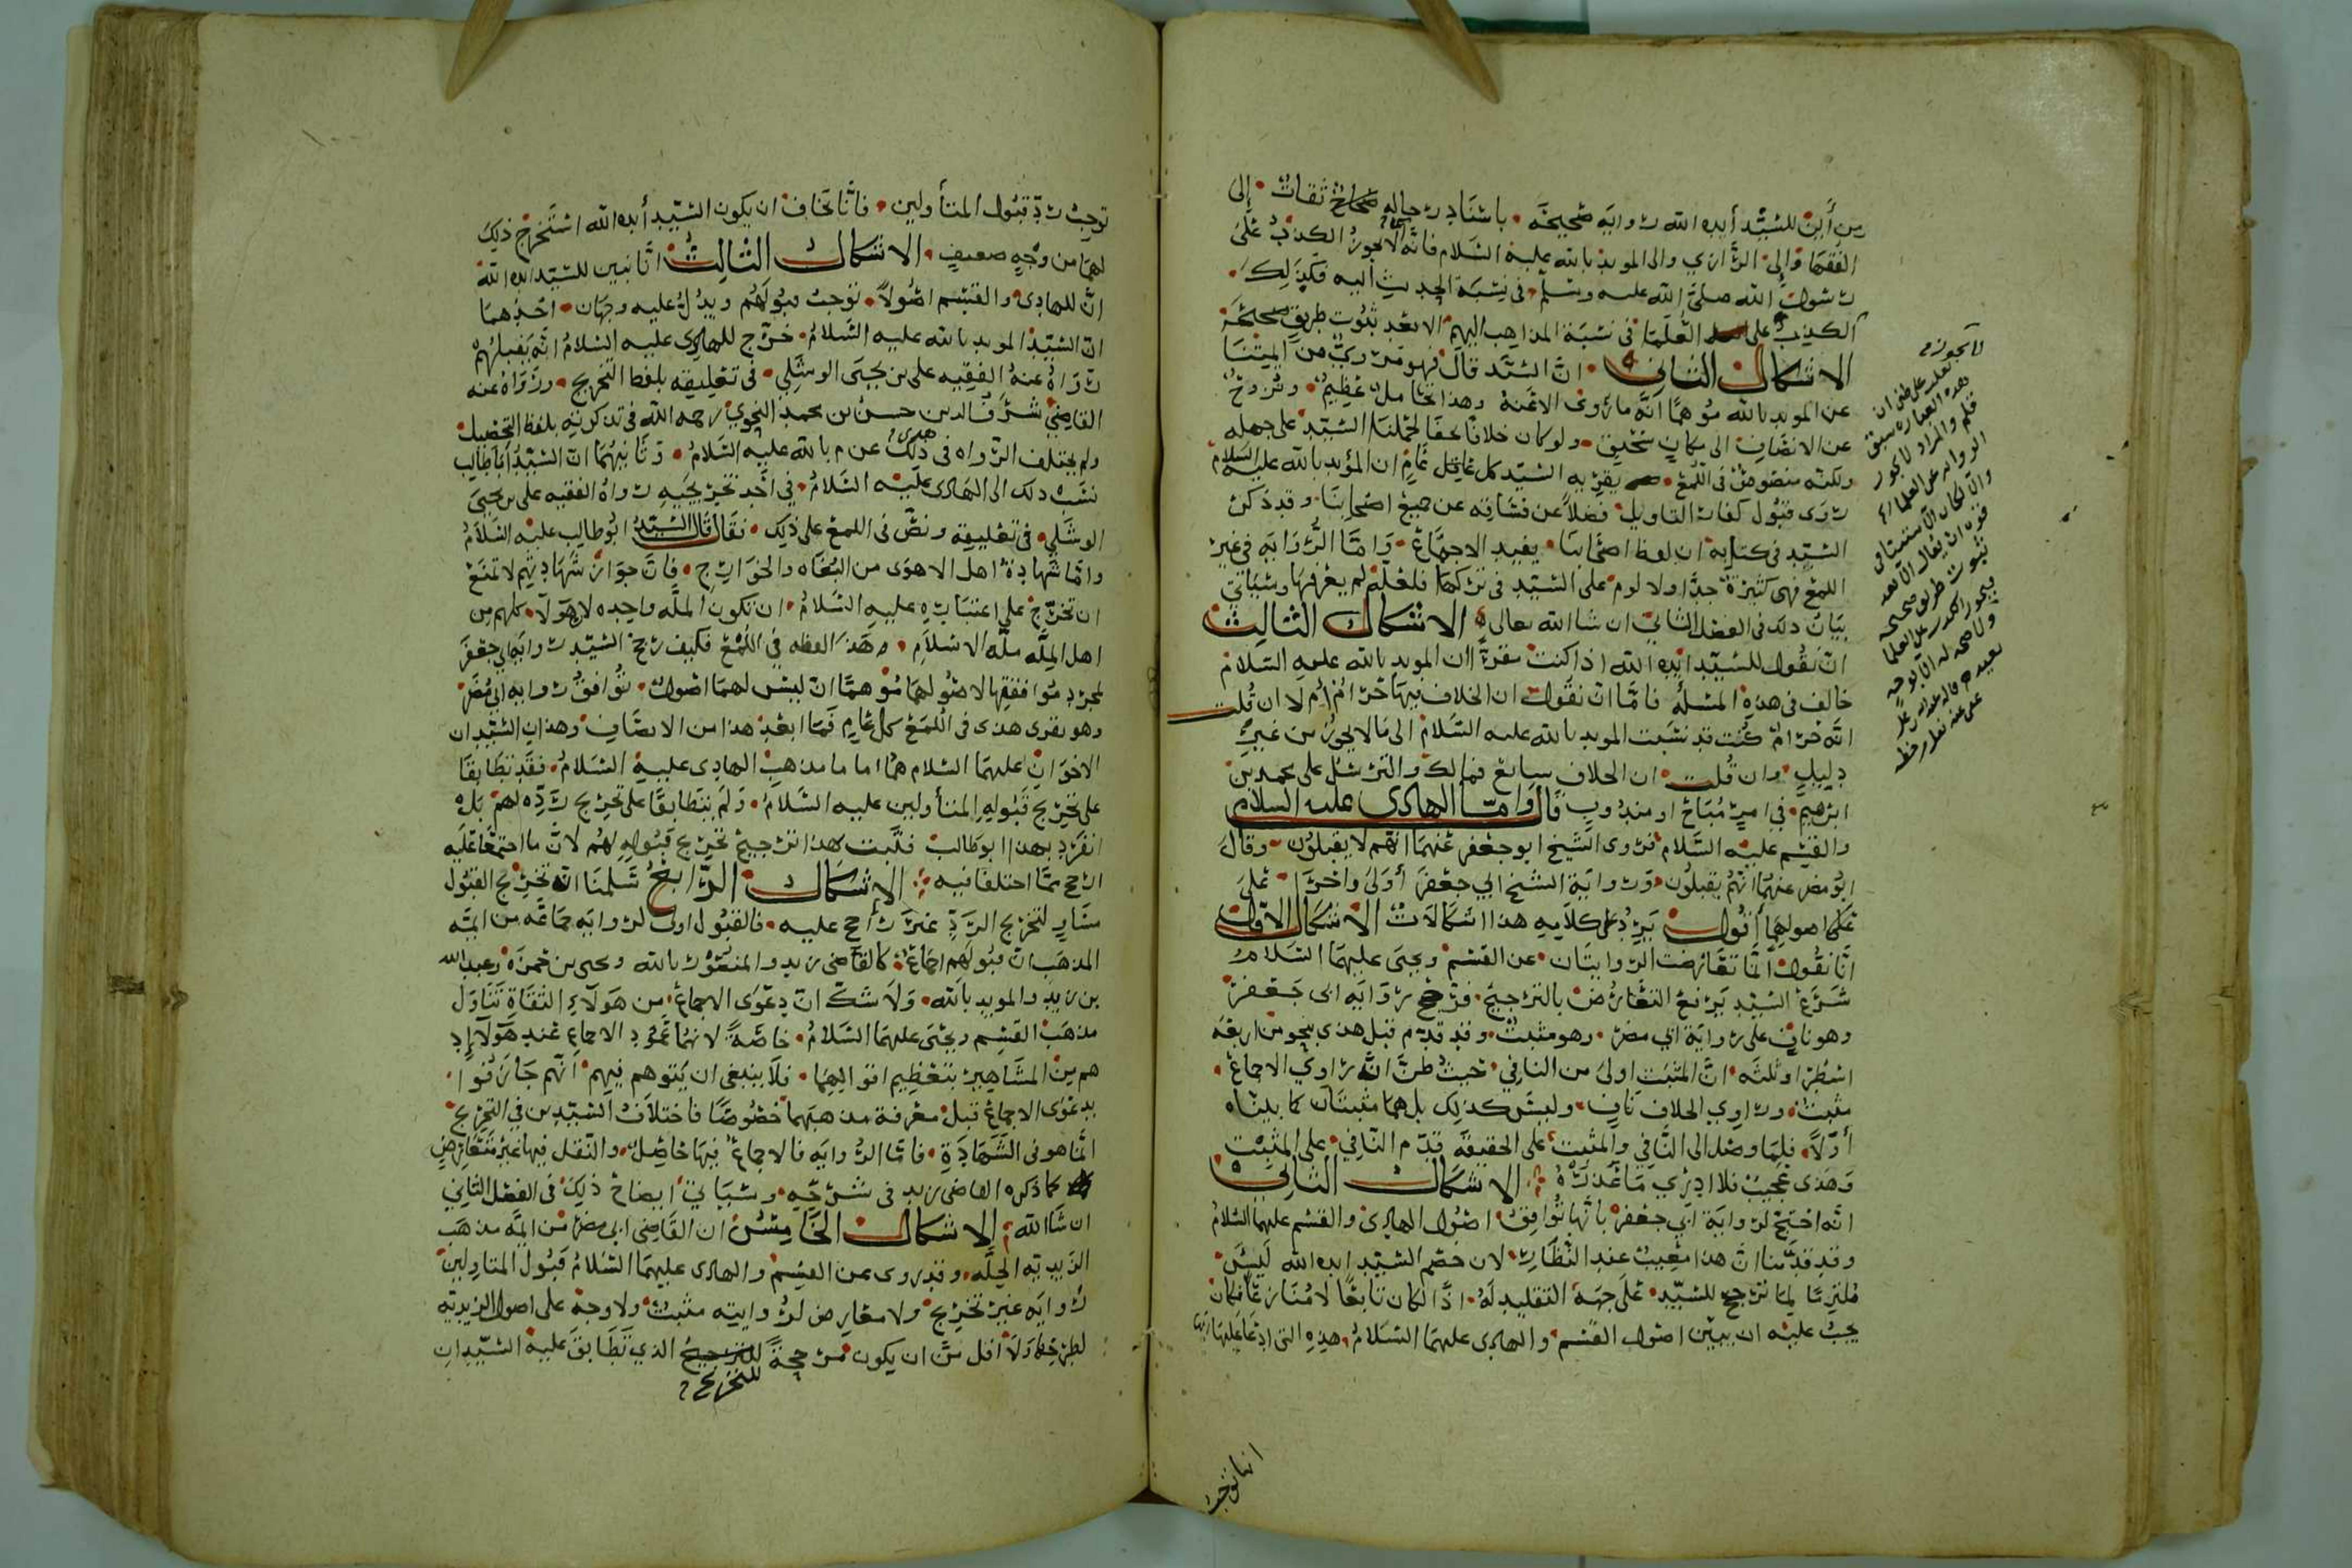 من أين للسيد أيده الله رواية صحيحة باسناد رجاله صحاح ثقات إلى
الفقها وإلى الرازي والى المويد بالله عليه السلام فانه لا يجوز الكذب على
رسول الله صلى الله عليه وسلم في نسبة الحديث اليه فكذلك
الكذب على العلما في نسبة المذاهب اليهم الا بعد ثبوت طريق صحيحة
الاشكال الثاني ان السيد قال فهو مروي من اليتنا
عن المويد بالله موهما انه ما روى الا عنه وهذا تحامل عظيم ونزوح
عن الانصاف الى مكان سحيق ولو كان خلافا خفيا لحملنا السيد على جهله
ولكنه منصوص في اللمع يقر به السيد كل عاقل عام ان المؤيد بالله عليه السلام
يرى قبول كفار التاويل فضلا عن فساقه عن جميع اصحابنا وقد ذكر
السيد في كتابه ان لفظ اصحابنا يفيد الاجماع واما الرواية في غير
اللمع فهي كثيرة جدا ولا لوم على السيد في تركها فلعله لم يعرفها وسياتي
بيان ذلك في الفصل الثاني ان شا الله تعالى الاشكال الثالث
ان نقول للسيد ايده الله اذا كنت مقرا ان المويد بالله عليه السلام
خالف في هذه المسئلة فاما ان نقول ان الخلاف فيها حرام ام لا ان قلت
انه حرام كنت قد نسبت المويد بالله عليه السلام الى ما لا يجوز من غير
دليل وان قلت ان الخلاف سايغ فمالك والترسل على محمد بن
ابرهيم في امر مباح او مندوب قال واما الهادي عليه السلام
والقسم عليه السلام فروى الشيخ ابو جعفر عنهما انهم لا يقبلون وقال
ابو مضر عنهما انهم يقبلون ورواية الشيخ ابي جعفر أولى واحرا على
على اصولهما أقول يرد على كلامه هذا اشكالات الاشكال الاول
انا نقول انما تعارضت الروايتان عن القسم ويحيى عليهما السلام
شرع السيد يرفع التعارض بالترجيح فرجح رواية ابي جعفر
وهو ناف على رواية ابي مضر وهو مثبت وقد قدم قبل هذى بنحو من اربعة
اسطر او ثلثة ان المثبت اولى من النافي حيث ظن ان راوي الاجماع
مثبت وراوي الخلاف ناف وليس كذلك بل هما مثبتان كما بيناه
أولا فلما وصل الى النافي والمثبت على الحقيقة قدم النافي على المثبت
وهذى عجيب فلا ادري ما عذره الاشكال الثاني
انه احتج لرواية ابي جعفر بانها توافق اصول الهادي والقسم عليهما السلام
وقد قدمنا ان هذا معيب عند النظار لان خصم السيد ايده الله ليس
ملتزما لما ترجح للسيد على جهة التقليد له اذا لكان تابعا لا منازعا فكان
يجب عليه ان يبين اصول القسم والهادي عليهما السلام هذه التي ادعا عليها
انها توجب
لا يجوز
هذه العباره سبق
قلم والمراد لا يجوز
توجب رد قبول المتأولين فانا نخاف ان يكون السيد أيده الله استخرج ذلك
لهما من وجه ضعيف الاشكال الثالث انا نبين للسيد ايده الله
ان للهادي والقسم اصولا توجب قبولهم ويدل عليه وجهان احدهما
ان السيد المويد بالله عليه السلام خرج للهادي عليه السلام انه يقبلهم
رواه عنه الفقيه علي بن يحيى الوشلي في تعليقه بلفظ التخريج ورواه عنه
القاضي شرف الدين حسن بن محمد النحوي رحمه الله في تذكرته بلفظ التحصيل
ولم يختلف الرواه في ذلك عن م بالله عليه السلام وثانيهما ان السيد أبا طالب
نسب ذلك الى الهادي عليه السلام في أحد تخريجيه رواه الفقيه علي بن يحيى
الوشلي في تعليقه ونص في اللمع على ذلك فقال قال السيد ابو طالب عليه السلام
واما شهادة اهل الاهوى من البغاه والخوارج فان جواز شهادتهم لا تمنع
ان تخرج على اعتباره عليه السلام ان تكون المله واحده لان هولا كلهم من
اهل المله مله الاسلام وهذا لفظه في اللمع فكيف رجح السيد رواية ابي جعفر
لمجرد موافقتها لاصولهما موهما ان ليس لهما اصول توافق رواية ابي مضر
وهو يقرى هذى في اللمع كل عام فما ابعد هذا من الانصاف وهذان السيدان
الاخوان عليهما السلام هما اماما مذهب الهادي عليه السلام فقد تطابقا
على تخريج قبوله المتأولين عليه السلام ولم يتطابقا على تخريج رده لهم بل
انفرد بهذا ابو طالب فثبت بهذا ترجيح تخريج قبوله لهم لان ما اجتمعا عليه
ارجح مما اختلفا فيه الاشكال الرابع سلمنا ان تخريج القبول
مساو لتخريج الرد غير راجح عليه فالقبول اولى لرواية جماعة من ايمه
المذهب ان قبولهم اجماع كالقاضي زيد والمنصور بالله ويحيى بن حمزه وعبد الله
بن زيد والمويد بالله ولا شك ان دعوى الاجماع من هولاء الثقاة تتناول
مذهب القسم ويحيى عليهما السلام خاصة لانهما عمود الاجماع عند هولا اذ
هم من المشاهير بتعظيم اقوالهما فلا ينبغي ان يتوهم فيهم انهم جازفوا
بدعوى الاجماع قبل معرفة مذهبهما خصوصا فاختلاف السيدين في التخريج
انما هو في الشهادة فاما الروايه فالاجماع فيها حاصل والنقل فيها غير متعارض
كما ذكره القاضي زيد في شرحه وسياتي ايضاح ذلك في الفصل الثاني
ان شا الله الاشكال الخامس ان القاضي ابي مضر من ايمة مذهب
الزيدية الجله وقد روى عن القسم والهادي عليهما السلام قبول المتاولين
رواية غير تخريج ولا معارض لروايته مثبت ولا وجه على اصول الزيديه
لطرحها ولا اقل من ان يكون مرجحة للتخريج الذي تطابق عليه السيدان
للتخريج